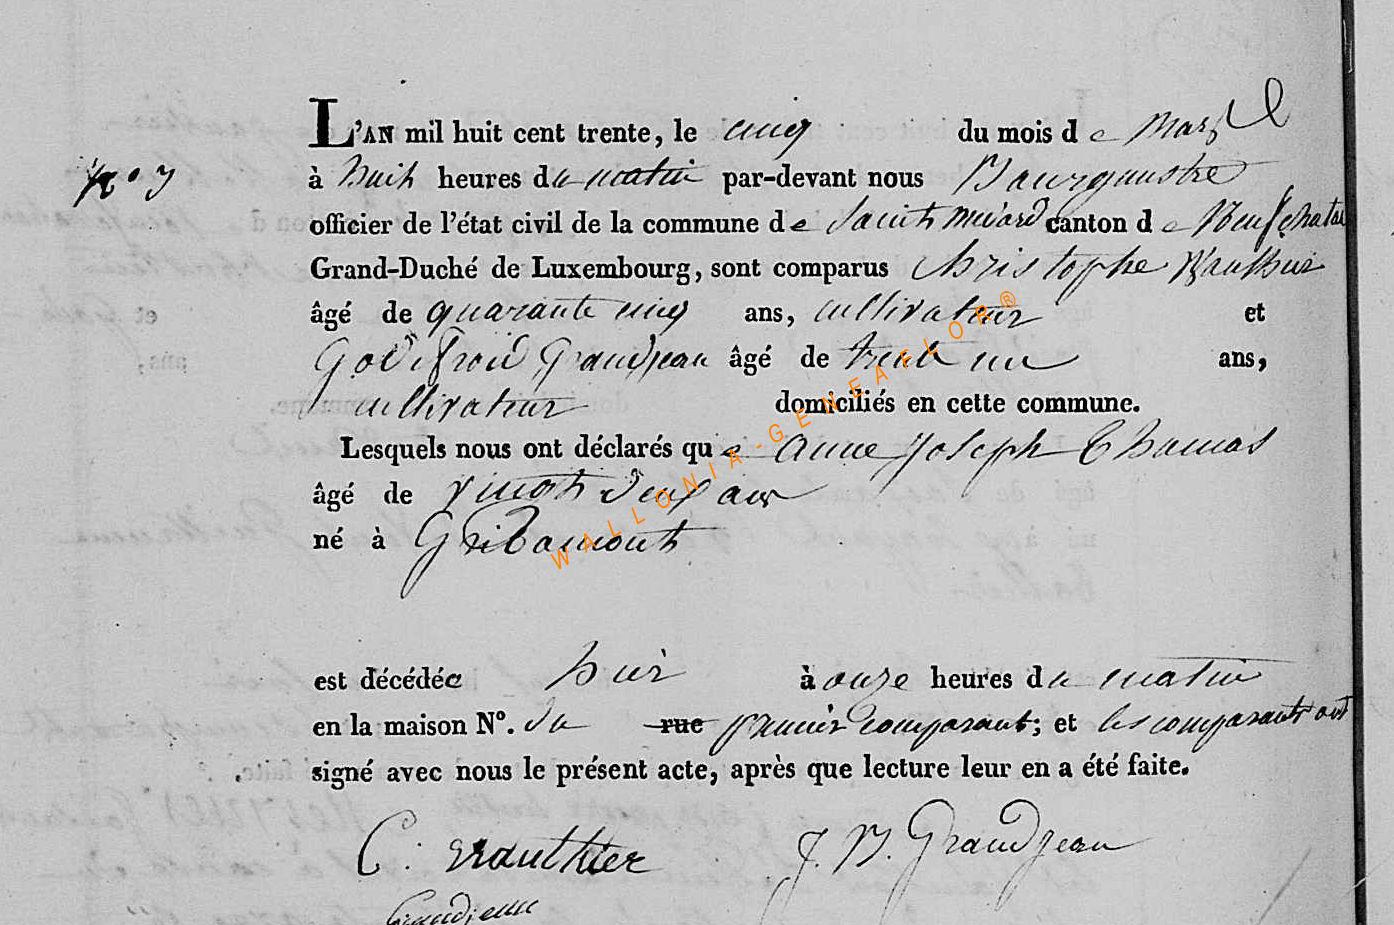 L'AN mil huit cent trente, le cinq du mois de Mars
N° 7 à huit heures du matin par-devant nous Bourgmestre
officier de l'état civil de la commune de Saint médard canton de Neufchatau
Grand-Duché de Luxembourg, sont comparus Christophe Wauthier
âgé de quarante cinq ans, cultivateur et
Godefroid Grandjean âgé de trente un ans,
cultivateur domiciliés en cette commune.
Lesquels nous ont déclarés que anne Joseph Thomas
âgé de vingt deux ans
né à Gribamont
est décédée hier à onze heures du matin
en la maison N°. du rue premier comparant; et les comparants ont
signé avec nous le présent acte, après que lecture leur en a été faite.
C. Wauthier J. B. Grandjean
Grandjean
WALLONIA-GENEAFLOR®